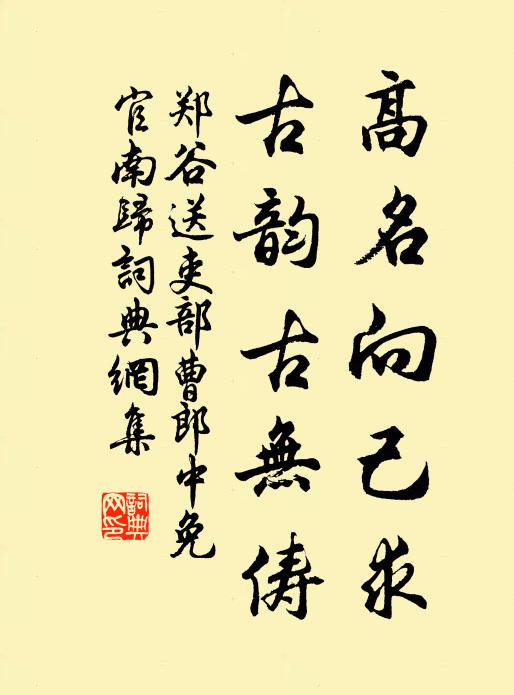 高名向己求
古韵古無俦
郑谷送吏部曹郎中免
官南歸詞典網集
詞典
网印